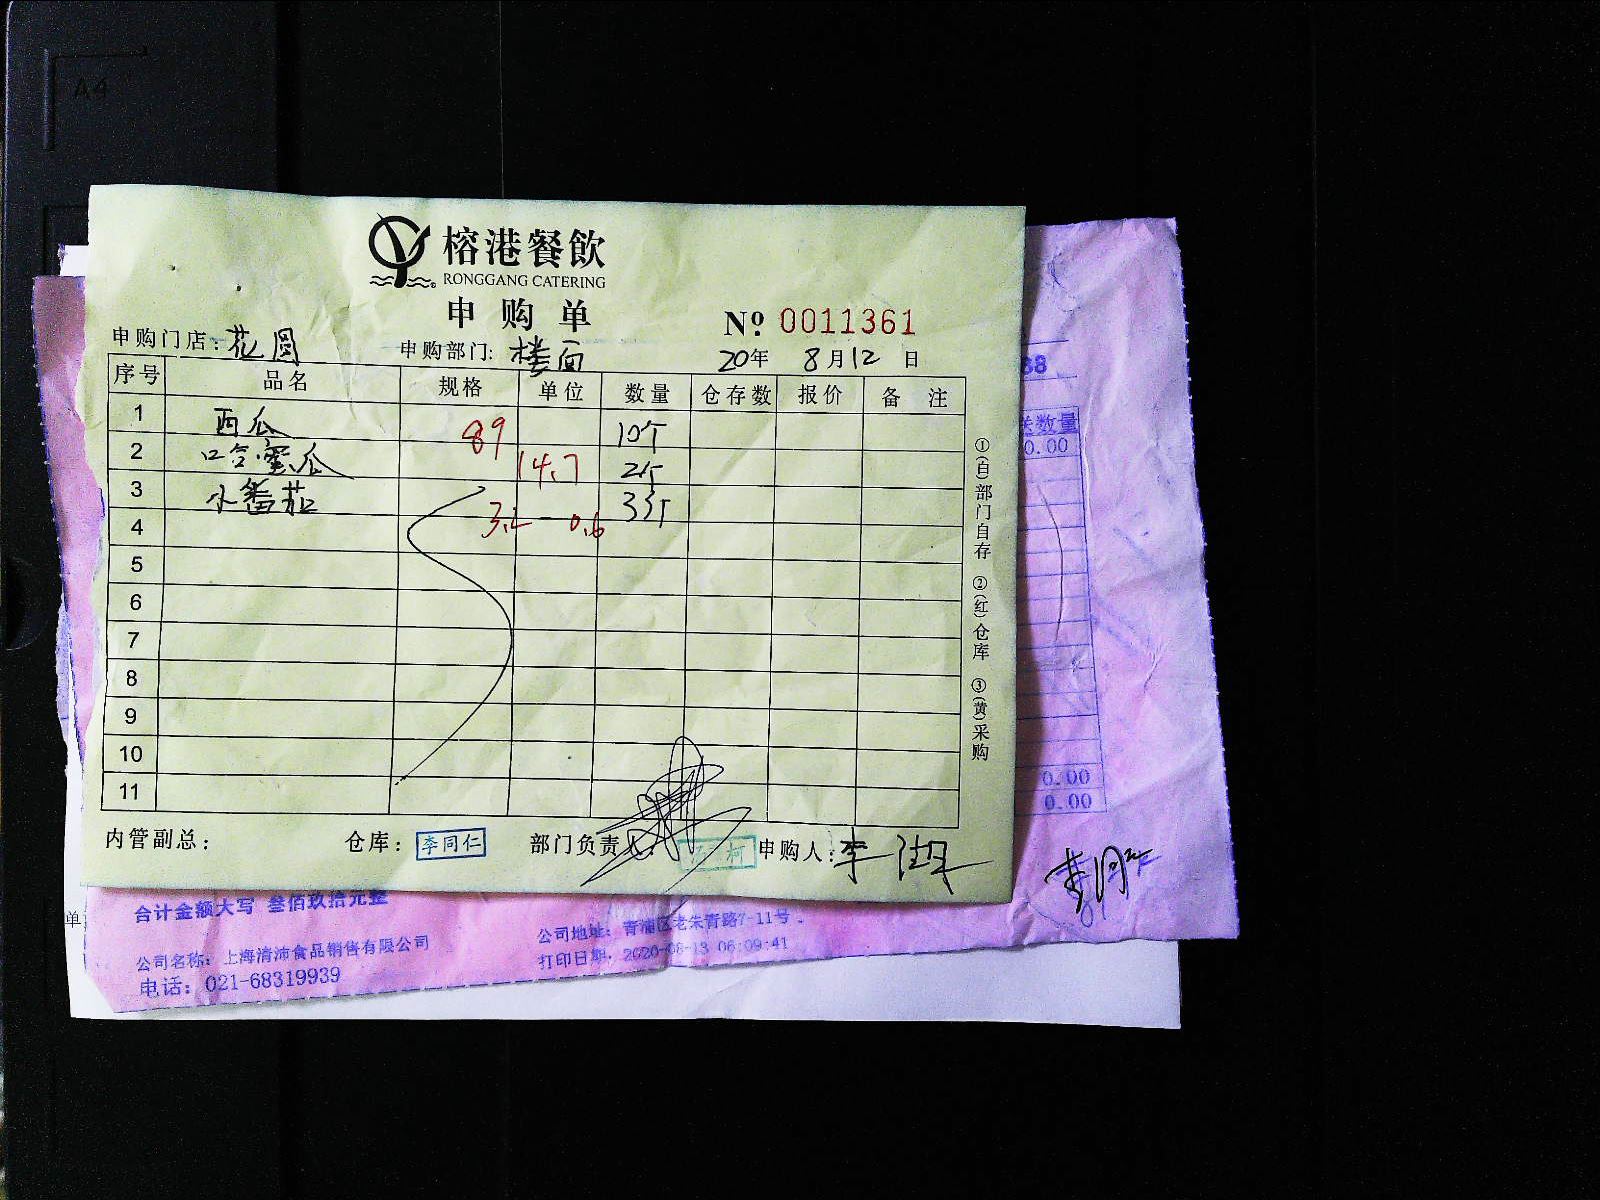 A4
榕港餐飲
RONGGANG CATERING
申购单
№ 0011361
申购门店: 花园 申购部门: 楼面 20年 8月12日
序号 品名 规格 单位 数量 仓存数 报价 备注
1 西瓜 89 10个
2 哈蜜瓜 14.7 2个
3 小番茄 3.2 0.6 3斤
4
5
6
7
8
9
10
11
①(白)部门自存 ②(红)仓库 ③(黄)采购
内管副总: 仓库: 李同仁 部门负责人: 申购人: 李
38
送数量
0.00
0.00
0.00
单
合计金额大写 叁佰玖拾元整
公司名称: 上海清沛食品销售有限公司 公司地址: 青浦区老朱青路7-11号
电话: 021-68319939 打印日期: 2020-08-13 06:09:41